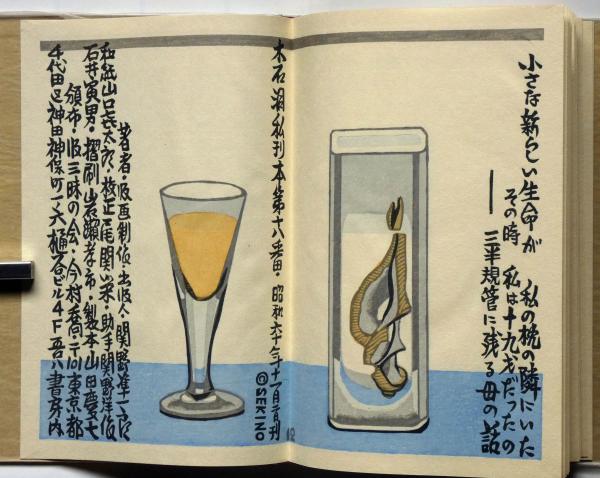 小さな新らしい生命が 私の梡の隣にいた
その時 私は十九才だったの
── 三半規管に残る母の話
木石洞私刊本第十八番・昭和六十年十一月一日刊
©SEKINO
著者・版画制作・出版人・関野凖一郎
和紙山口㐂太郎・校正 尾関 来・助手関野洋作
石井寅男・摺刷山岩瀬孝市・製本山田慶七
頒布・版三昧の会・今村喬・〒101東京都
千代田区神田神保町一ノ六樋石ビル4F吾八書房内